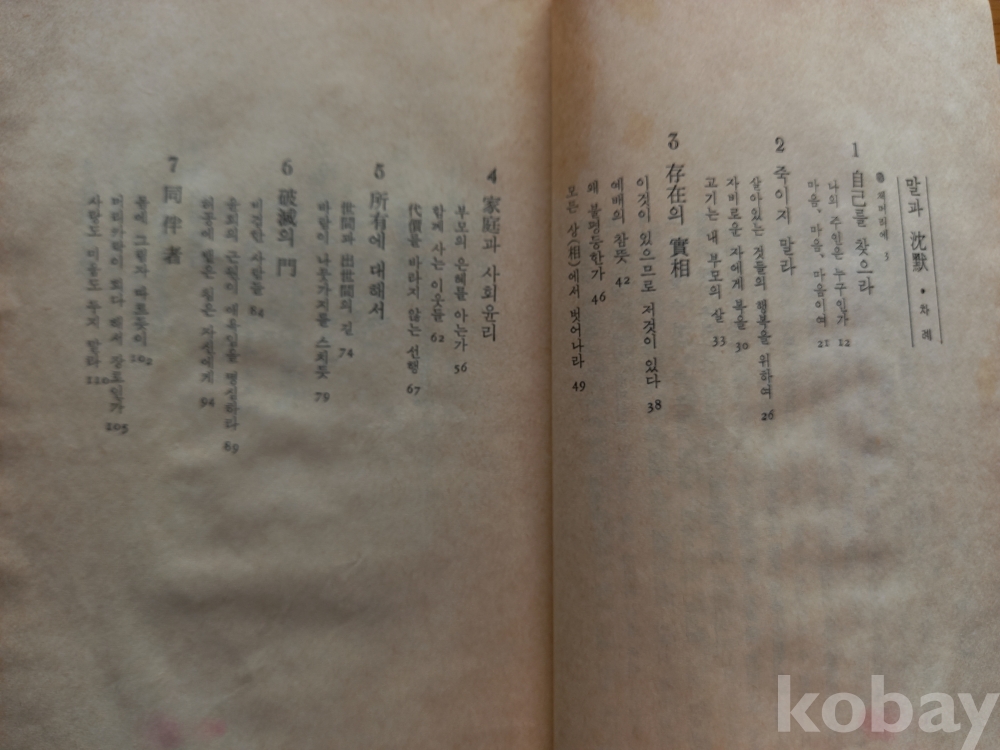 말과 沈默 • 차례
● 책머리에 3
1 自己를 찾으라
나의 주인은 누구인가 12
마음, 마음, 마음이여 21
2 죽이지 말라
살아있는 것들의 행복을 위하여 26
자비로운 자에게 복을 30
고기는 내 부모의 살 33
3 存在의 實相
이것이 있으므로 저것이 있다 38
예배의 참뜻 42
왜 불평등한가 46
모든 상(相)에서 벗어나라 49
4 家庭과 사회윤리
부모의 은혜를 아는가 56
함께 사는 이웃들 62
代價를 바라지 않는 선행 67
5 所有에 대해서
世間과 出世間의 길 74
바람이 나뭇가지를 스치듯 79
6 破滅의 門
비천한 사람들 84
89
94
7 同伴者
102
105
사랑도 미움도 두지 말라 110
kobay